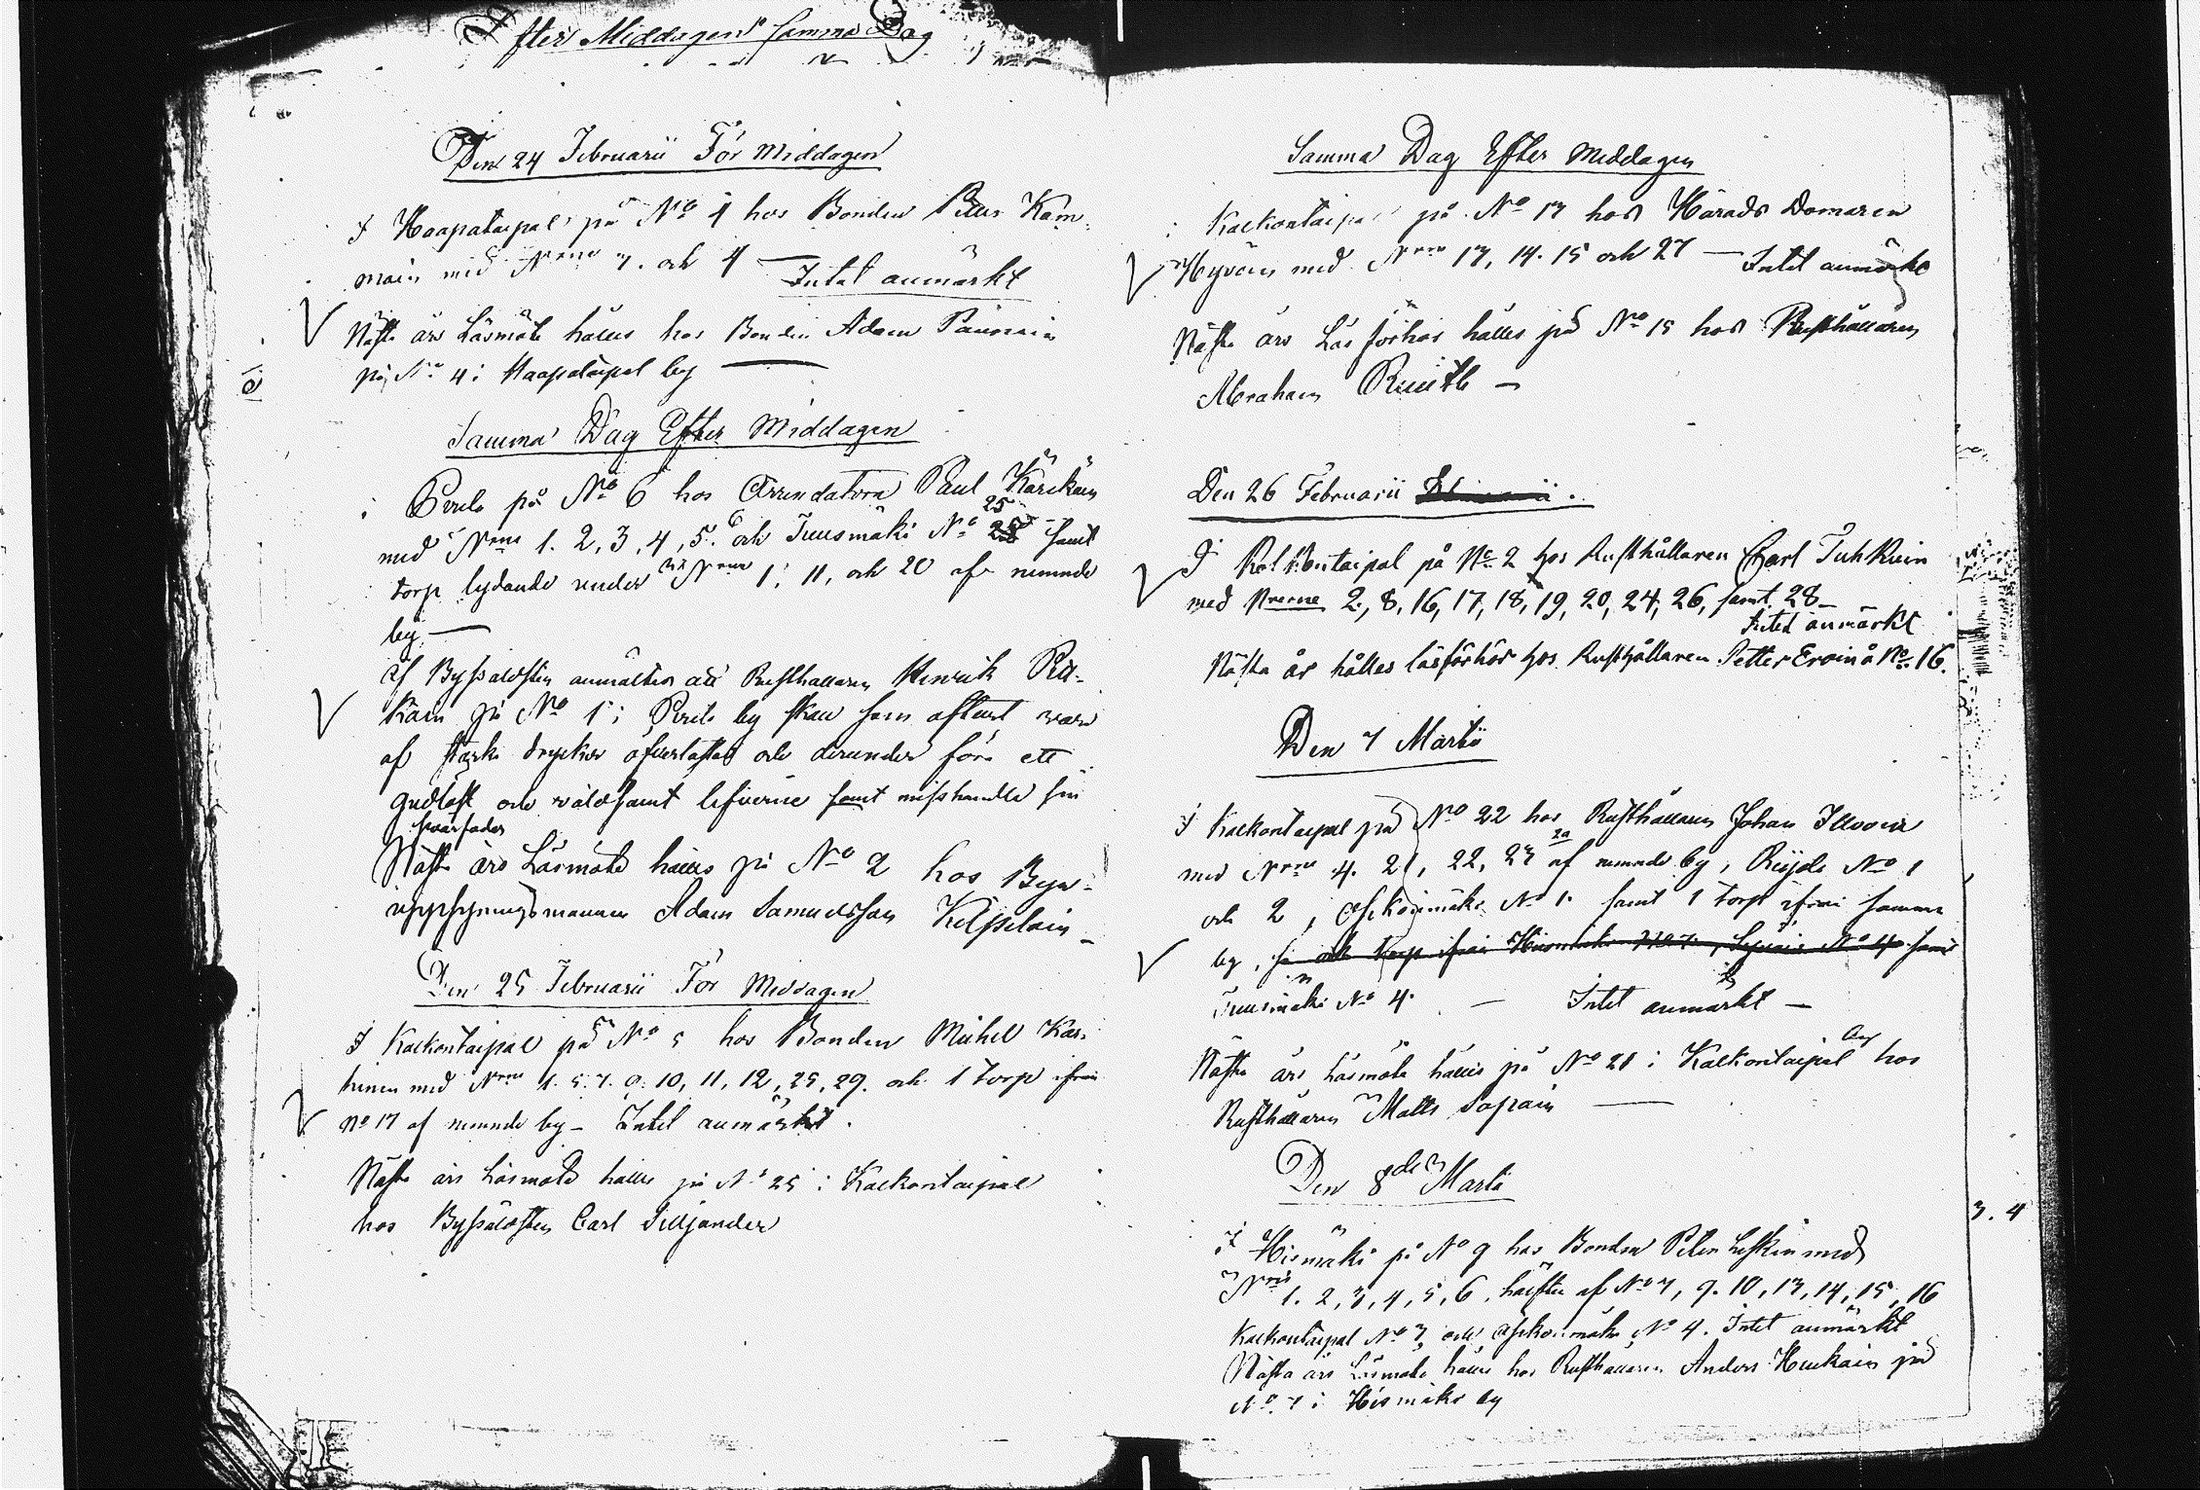 Efter Middagen samma Dag
Den 24 Februarii För Middagen
I Haapataipal på No 4 hos Bonden Petter Käm-
mäin med Nrne 7. och 4 — Intet anmärkt
Nästa års Läsmöte hålles hos Bonden Adam Paunain
på No 4 i Haapataipal by —
Samma Dag Efter Middagen
i Perile på No 6 hos Arrendatorn Paul Kärikäin
med Nrne 1. 2, 3, 4, 5. 6 och Tuusmäki No 25 samt
torp lydande under Nrne 1. 11, och 20 af nemnde
by —
Af Bysåldsten anmältes att Rusthållaren Henrik Pit-
käin på No 1 i Perile by skall som oftast vara
af starka drycker öfverlastad och derunder föra ett
gudlöst och våldsamt lefverne samt misshandla sin
svärfader
Nästa års Läsmöte hålles på No 2 hos Bya-
uppsyningsmannen Adam Samuelsson Kilpelain —
Den 25 Februarii För Middagen
I Kalkontaipal på No 5 hos Bonden Mickel Kar-
hinen med Nrne 1. 5. 7. 9. 10, 11, 12, 25, 29. och 1 torp ifrån
No 17 af nemnde by — Intet anmärkt.
Nästa års Läsmöte hålles på No 25 i Kalkontaipal
hos Bysåldsten Carl Silljander
Samma Dag Efter Middagen
i Kalkontaipal på No 13 hos Härads Domaren
Hyväin med Nrne 13, 14. 15 och 27 — Intet anmärkt
Nästa års Läsförhör hålles på No 15 hos Rusthållaren
Abraham Ruuth —
Den 26 Februarii
I Kalkontaipal på No 2 hos Rusthållaren Carl Tuhkuin
med Nrerne 2, 8, 16, 17, 18, 19, 20, 24, 26, samt 28 —
Intet anmärkt
Nästa år hålles läsförhör hos Rusthållaren Petter Eroin å No 16.
Den 7 Martii
I Kalkontaipal på No 22 hos Rusthållaren Johan Illvoin
med Nrne 4. 21, 22, 23 af nemnde by, No 1
och 2, No 1. samt 1 torp ifrån samma
by, och torp ifrån No 4 samt
Tuusmäki No 4. — Intet anmärkt —
Nästa års Läsmöte hålles på No 21 i Kalkontaipal by hos
Rusthållaren Matts Sapain —
Den 8de Martii
I Hismäki på No 9 hos Bonden Peter Leskin med
Nris 1. 2, 3, 4, 5, 6, hälften af No 7, 9. 10, 13, 14, 15, 16
Kalkontaipal No 3, och No 4. Intet anmärkt
Nästa års Läsmöte hålles hos Rusthållaren Anders Huukain på
No 7 i Hismäki by
3. 4